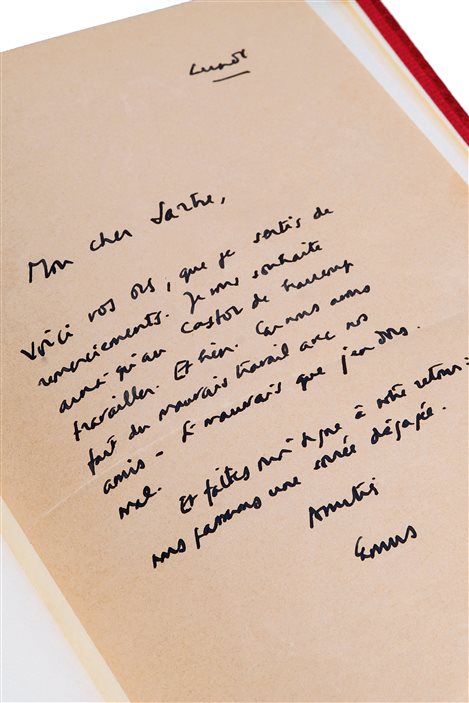 Lundi
Mon cher Sartre,
Voici vos ors, que je sortis de
remerciements. Je vous souhaite
ainsi qu'au Castor de beaucoup
travailler. Et bien. Car nous avons
fait du mauvais travail avec nos
amis - si mauvais que j'en dors
mal.
Et faites moi signe à votre retour :
nous passerons une soirée dégagée.
Amitiés
Camus